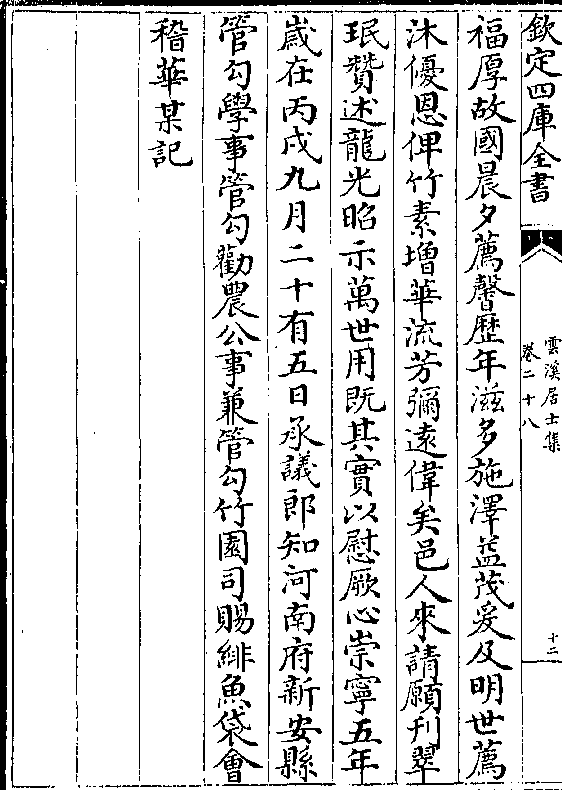 欽定四庫全書
雲溪居士集
卷二十八
十二
福厚故國晨夕薦馨歴年滋多施澤益茂爰及明世薦
沐優恩俾竹素增華流芳彌逺偉矣邑人來請願刋翠
珉贊述龍光昭示萬世用既其實以慰厥心崇寧五年
嵗在丙戌九月二十有五日承議郎知河南府新安縣
管勾學事管勾勸農公事兼管勾竹園司賜緋魚袋會
稽華某記